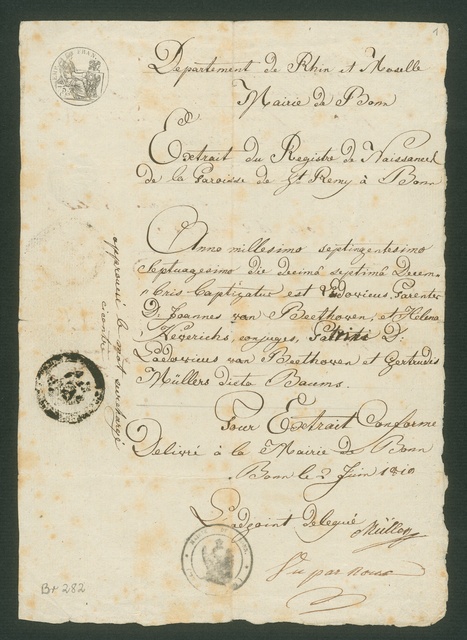 1
Departement de Rhin et Moselle
Mairie de Bonn
Extrait du Registre de Naissances
de la Paroisse de St Remy à Bonn
Anno millesimo septingentesimo
septuagesimo die decimâ septimâ Decem-
bris baptizatur est Ludovicus, Parentes
D: Joannes van Beethoven, et Helena
Keverichs, conjuges, Patrini D:
Ludovicus van Beethoven et Gertrudis
Müllers dicta Baums.
Pour Extrait Conforme
Delivré à la Mairie de Bonn
Bonn le 2 Juin 1810
L'adjoint delegué
Vu par nous
approuvé le mot surchargé
ci contre
B+ 282